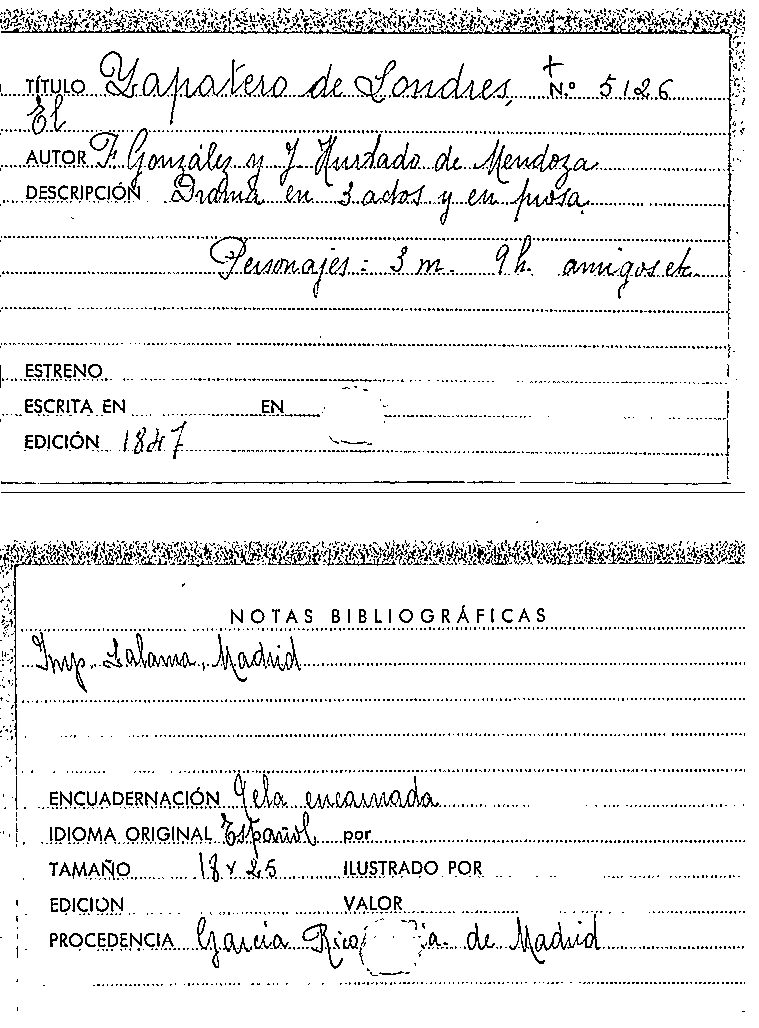 TÍTULO Zapatero de Londres, N.º 5126
El
AUTOR F. González y J. Hurtado de Mendoza
DESCRIPCIÓN Drama en 3 actos y en prosa.
Personajes: 3 m. 9 h. amigos etc.
ESTRENO
ESCRITA EN EN
EDICIÓN 1847
NOTAS BIBLIOGRÁFICAS
Imp. Lalama, Madrid
ENCUADERNACIÓN Tela encarnada
IDIOMA ORIGINAL Español por
TAMAÑO 18 x 25 ILUSTRADO POR
EDICION VALOR
PROCEDENCIA García Rico de Madrid